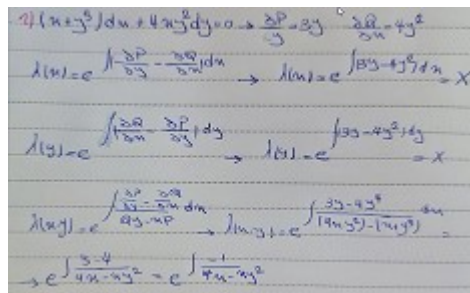 2) (x+y³)dx + 4xy²dy=0 → ∂P/y = 3y   ∂Q/∂x = 4y²
λ(x)=e^∫(-∂P/∂y - ∂Q/∂x)dx → λ(x)=e^∫(3y-4y²)dx = X
λ(y)=e^∫(∂Q/∂x - ∂P/∂y)dy → λ(y)=e^∫(3y-4y²)dy = X
λ(xy)=e^∫(∂P/∂y - ∂Q/∂x)/(Qy-xP) dx → λ(x,y)=e^∫(3y-4y²)/((4xy²)-(x+y³)) dx =
→ e^∫(3-4)/(4x-xy²) = e^∫(-1)/(4x-xy²)